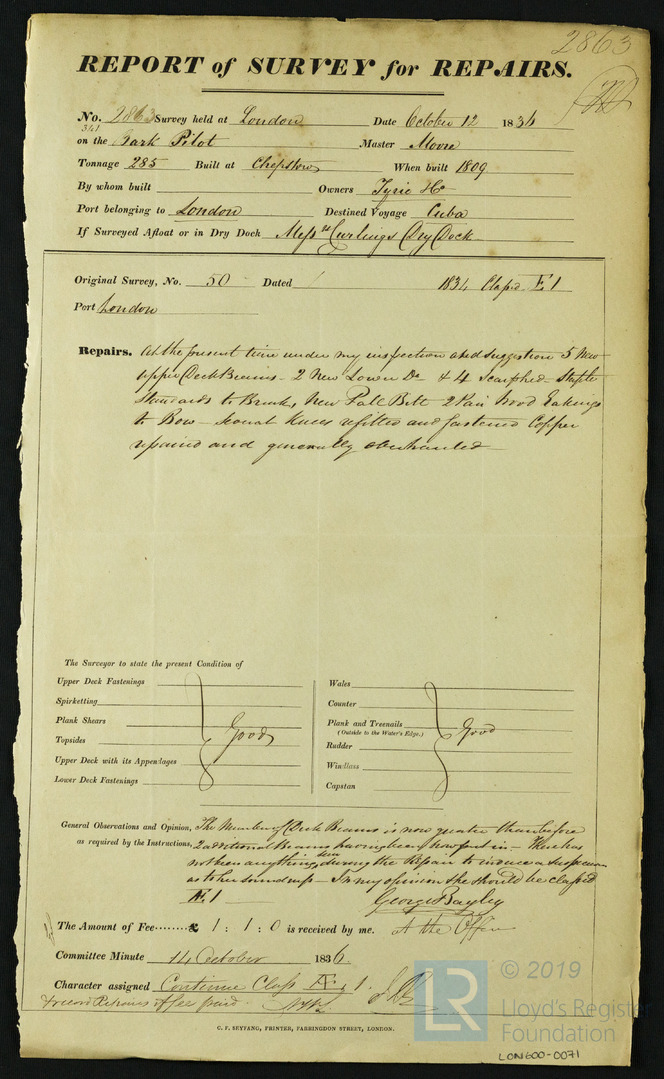 2863
REPORT of SURVEY for REPAIRS.
No. 2863 Survey held at London Date October 12 1836
341
on the Bark Pilot Master Moore
Tonnage 285 Built at Chepstow When built 1809
By whom built Owners Tyrie & Co
Port belonging to London Destined Voyage Cuba
If Surveyed Afloat or in Dry Dock Messrs Curlings Dry Dock
Original Survey, No. 50 Dated 1834 Classed Æ 1
Port London
Repairs. At the present time under my inspection and suggestion 5 New
upper Deck Beams - 2 New Lower Do & 4 Scarphed - Staple
Standards to Breast, New Pall Bitt 2 Pair Wood Eakings
to Bow - Several Knees refitted and fastened Copper
repaired and generally overhauled
The Surveyor to state the present Condition of
Upper Deck Fastenings
Spirketting
Plank Shears
Topsides
Upper Deck with its Appendages
Lower Deck Fastenings
Good
Wales
Counter
Plank and Treenails
(Outside to the Water's Edge.)
Rudder
Windlass
Capstan
Good
General Observations and Opinion, The Number of Deck Beams is now greater than before
as required by the Instructions, 2 additional Beams having been now put in - There has
not been anything seen during the Repair to induce a suspicion
as to her soundness - In my opinion she should be classed
Æ 1 George Bayley
The Amount of Fee £ 1 : 1 : 0 is received by me. At the Office
Committee Minute 14 October 1836
Character assigned Continue Class Æ 1
& record Repairs if fees paid.
C. F. SEYFANG, PRINTER, FARRINGDON STREET, LONDON.
LR © 2019
Lloyd's Register
Foundation
LON600-0071